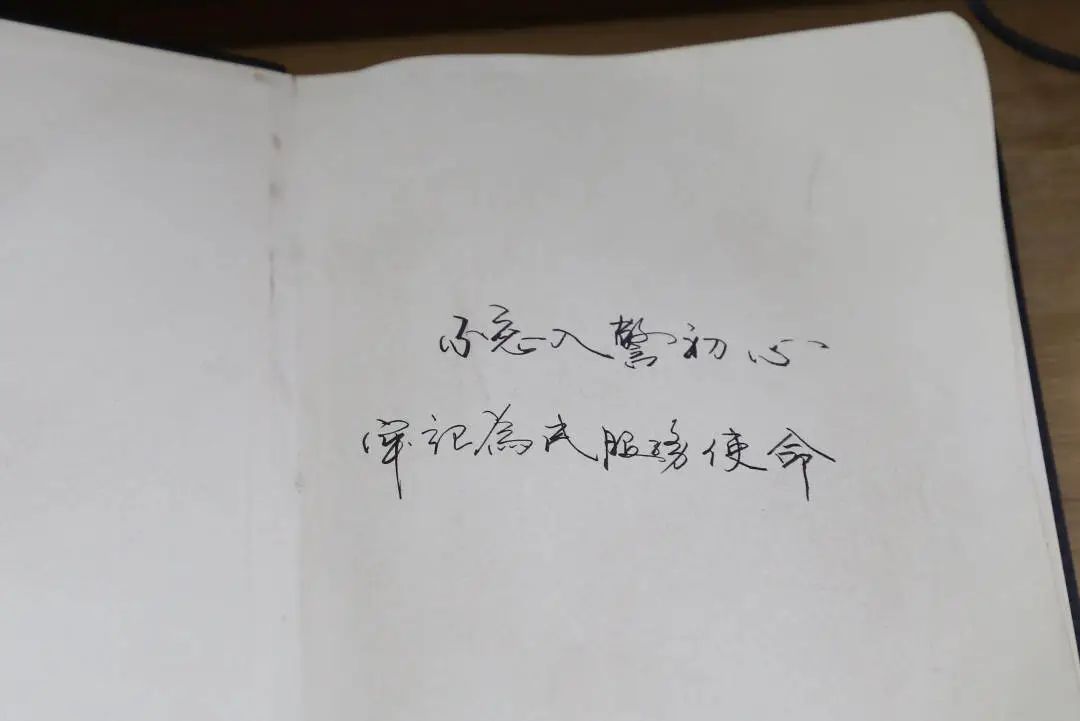 不忘入警初心
牢记為民服務使命